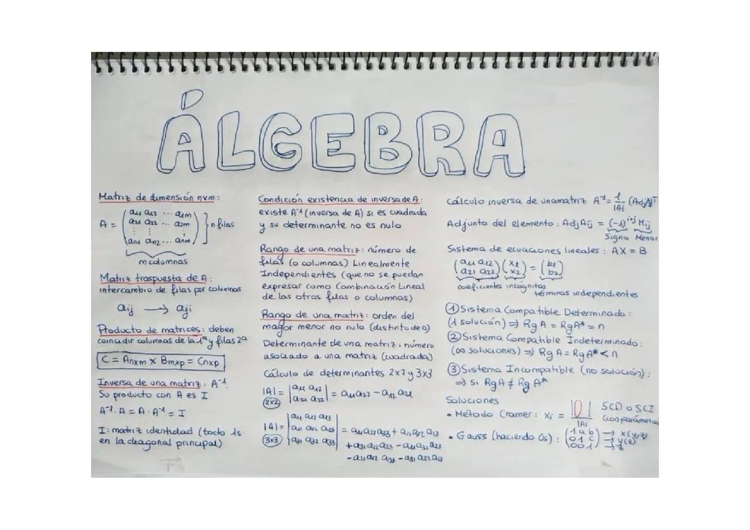 ÁLGEBRA
Matriz de dimensión nxm:
A = (a11 a12 ... a1m
... ...
an1 an2 ... anm) } n filas
m columnas
Matriz traspuesta de A:
intercambio de filas por columnas
aij → aji
Producto de matrices: deben
coincidir columnas de la 1ª y filas 2ª
C = Anxm x Bmxp = Cnxp
Inversa de una matriz: A⁻¹.
Su producto con A es I
A⁻¹·A = A·A⁻¹ = I
I: matriz identidad (todo 1s
en la diagonal principal)
Condición existencia de inversa de A:
existe A⁻¹ (inversa de A) si es cuadrada
y su determinante no es nulo
Rango de una matriz: número de
filas (o columnas) Linealmente
Independientes (que no se puedan
expresar como Combinación Lineal
de las otras filas o columnas)
Rango de una matriz: orden del
mayor menor no nulo (distinto de 0)
Determinante de una matriz: número
asociado a una matriz (cuadrada)
Cálculo de determinantes 2x2 y 3x3
|A| =
(2x2)
|A| =
(3x3)
Cálculo inversa de una matriz A⁻¹ = 1/|A| (Adj A)ᵀ
Adjunto del elemento: Adj Aij = (-1)ⁱ⁺ʲ Mij
Signo Menor
Sistema de ecuaciones lineales: AX = B
(a11 a12) (x1) = (b1)
(a21 a22) (x2) (b2)
coeficientes incógnitas
términos independientes
① Sistema Compatible Determinado:
(1 solución) ⇒ Rg A = Rg A* = n
② Sistema Compatible Indeterminado:
(∞ soluciones) ⇒ Rg A = Rg A* < n
③ Sistema Incompatible (no solución):
⇒ si Rg A ≠ Rg A*
Soluciones
• Método Cramer: xi = |0|/|A| SCD o SCI
(con parámetros)
• Gauss (haciendo 0s): (1 a b
0 1 c
0 0 1)